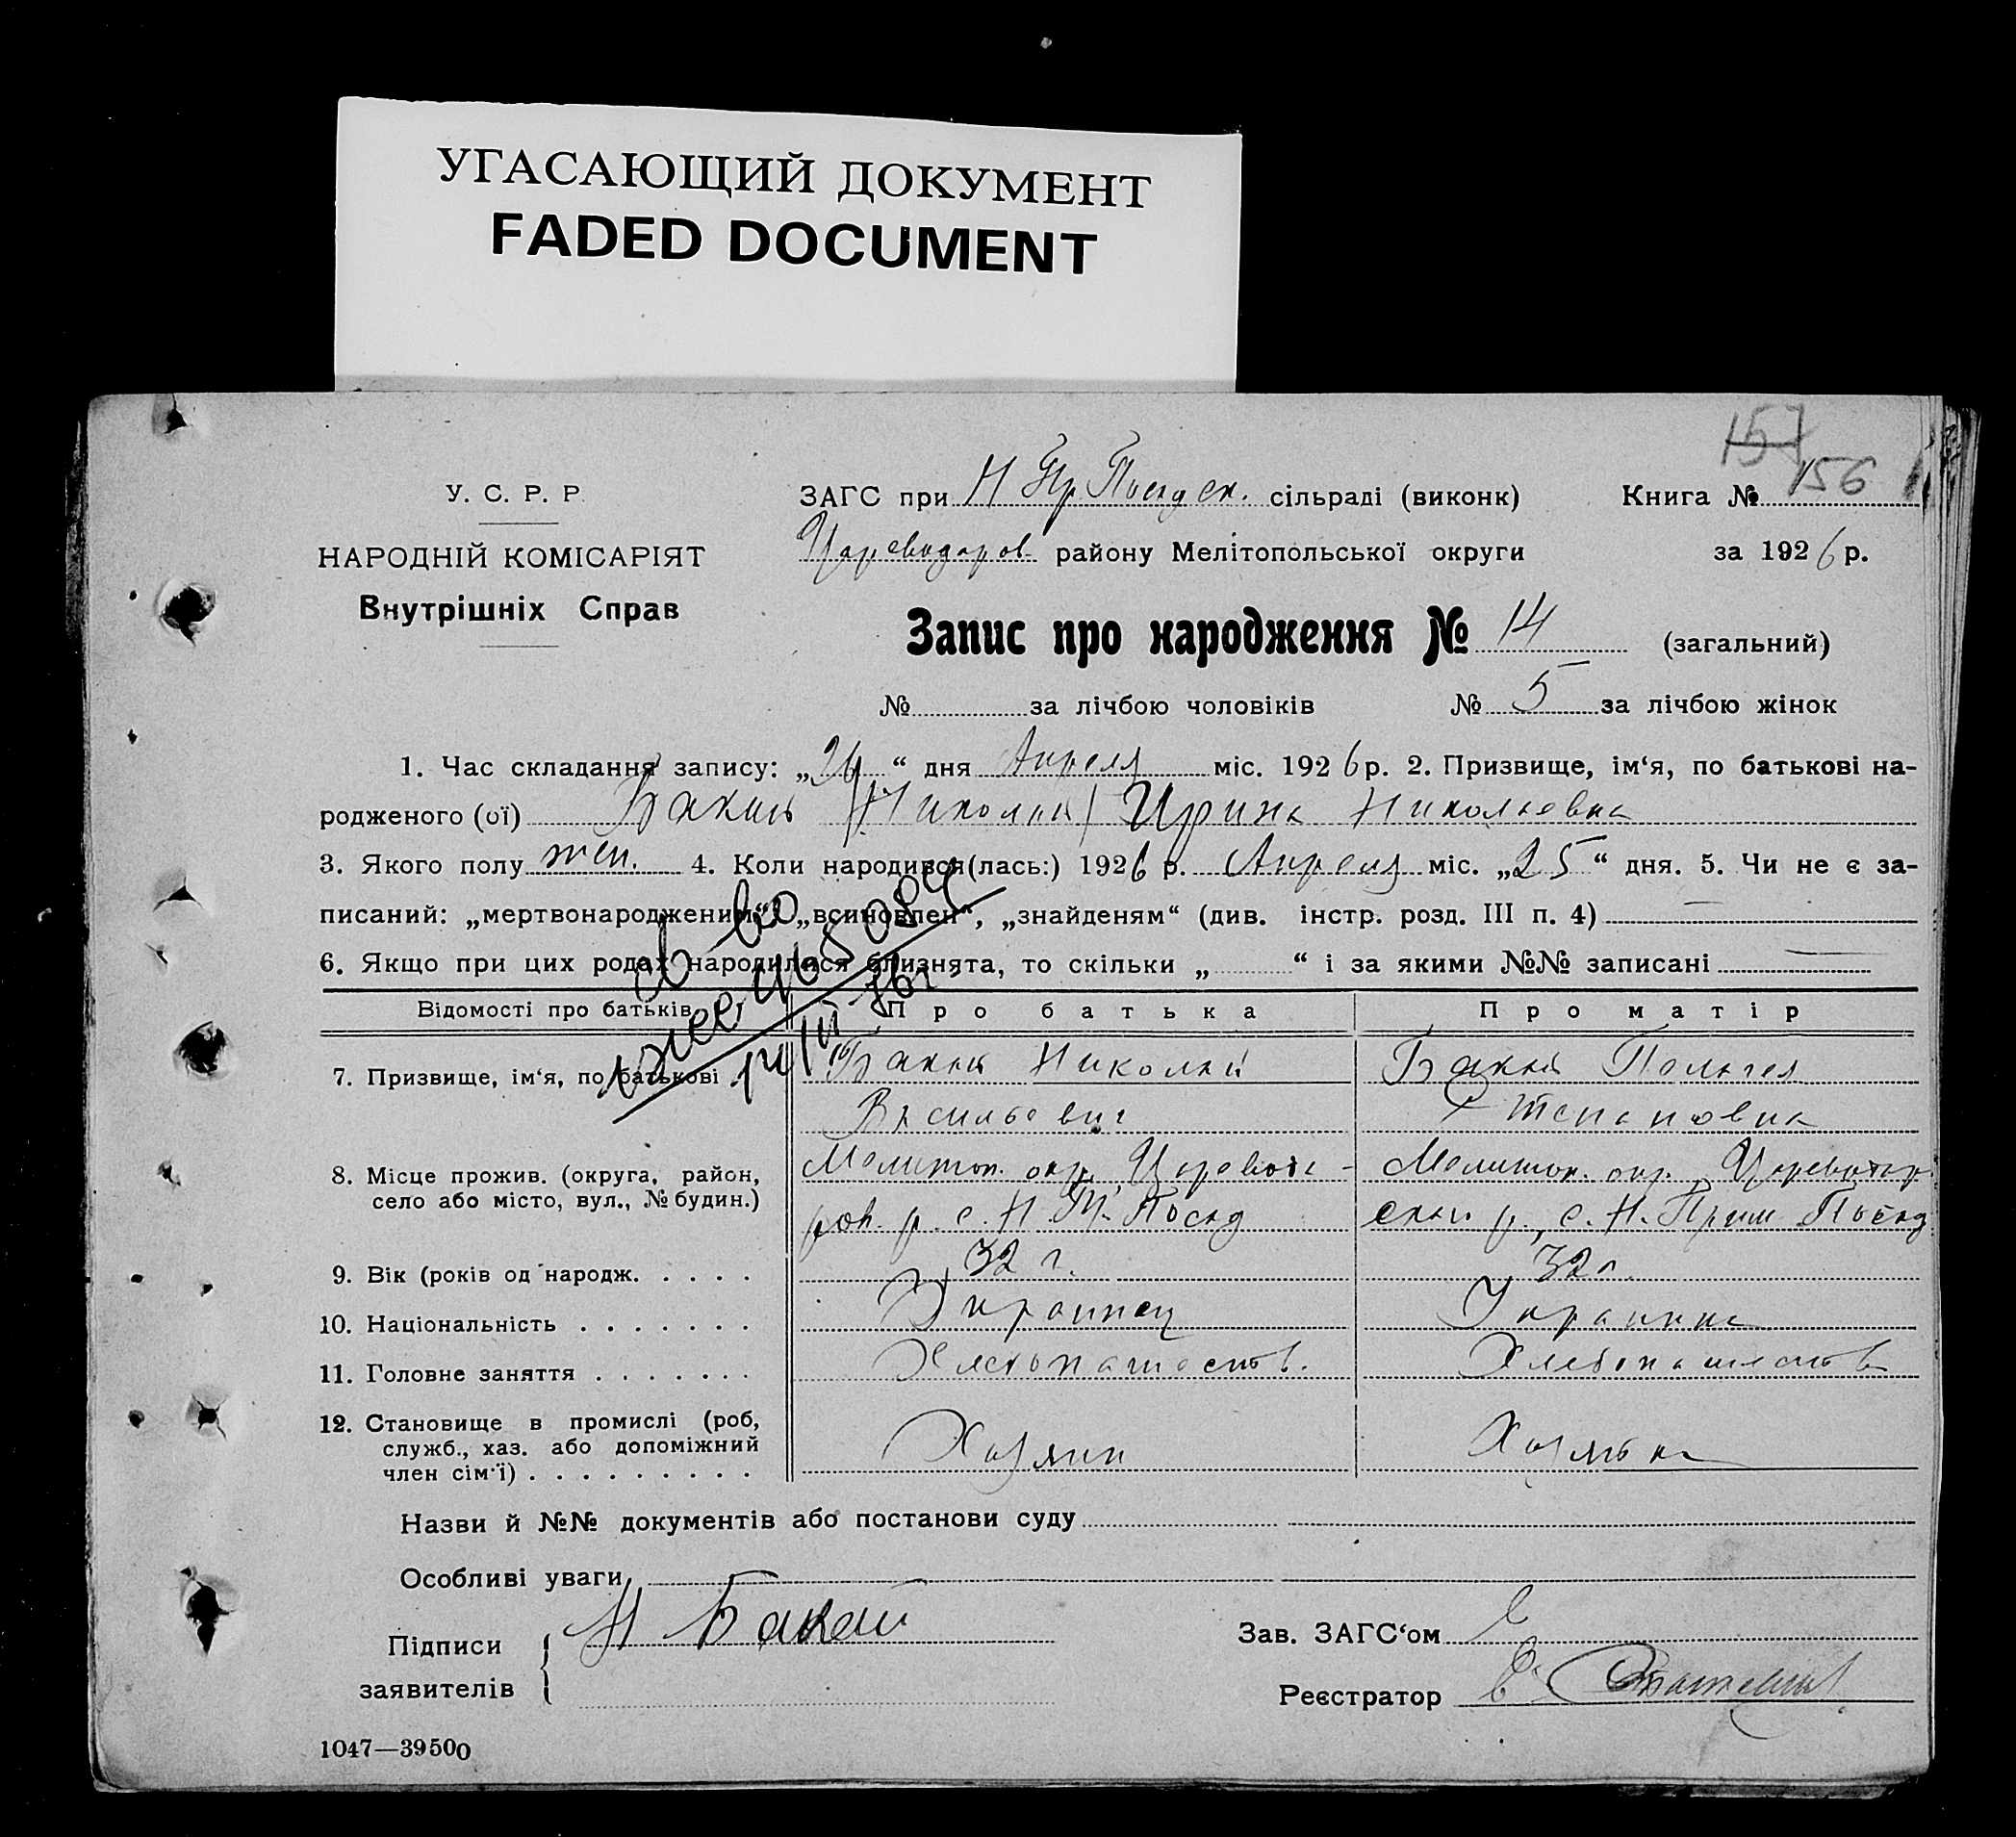 УГАСАЮЩИЙ ДОКУМЕНТ
FADED DOCUMENT
157
У. С. Р. Р.
ЗАГС при Н Пр. Посадск. сільраді (виконк)
Книга № 156
НАРОДНІЙ КОМІСАРІЯТ
Цареводаров. району Мелітопольської округи
за 1926 р.
Внутрішніх Справ
Запис про народження № 14 (загальний)
№ за лічбою чоловіків № 5 за лічбою жінок
1. Час складання запису: „26“ дня Апреля міс. 1926 р. 2. Призвище, ім‘я, по батькові на-
родженого (ої) Бакай (Николай) Ирина Николаевна
3. Якого полу жен. 4. Коли народився(лась:) 1926 р. Апреля міс. „25“ дня. 5. Чи не є за-
писаний: „мертвонародженим“, „всиновлен“, „знайденям“ (див. інстр. розд. III п. 4) —
6. Якщо при цих родах народилися близнята, то скільки „ “ і за якими №№ записані —
св-во
Відомості про батьків
Про батька
Про матір
7. Призвище, ім‘я, по батькові
Бакай Николай
Бакай Пелагея
Васильевич
Степановна
8. Місце прожив. (округа, район,
село або місто, вул., № будин.)
Мелитоп. окр. Цареводa-
Мелитоп. окр. Цареводар
ров. р. с. Н. Пр. Посад
ский р., с. Н. Приш Посад
9. Вік (років од народж. . . . .
32 г.
32 г.
10. Національність . . . . . . .
Украинец
Украинка
11. Головне заняття . . . . . . .
Хлебопашеств.
Хлебопашеств
12. Становище в промислі (роб,
служб., хаз. або допоміжний
член сім‘ї) . . . . . . . . .
Хозяин
Хозяйка
Назви й №№ документів або постанови суду
Особливі уваги
Підписи
заявителів
Н Бакай
Зав. ЗАГС‘ом
Реєстратор
1047—39500